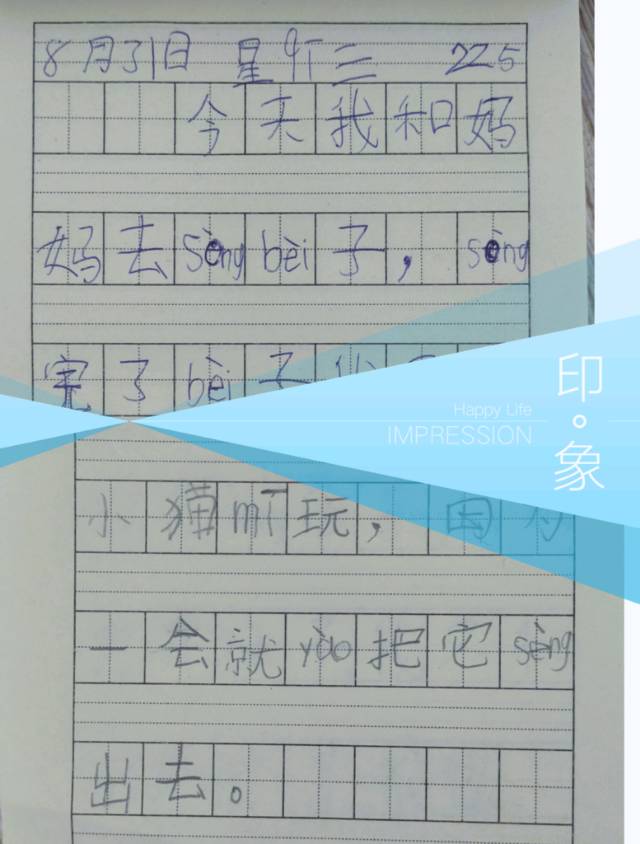 8月31日 星期三 225
今天我和妈
妈去sòng bèi子，sòng
完了bèi子
Happy Life
IMPRESSION
印·象
小猫mī玩，因为
一会就yào把它sòng
出去。